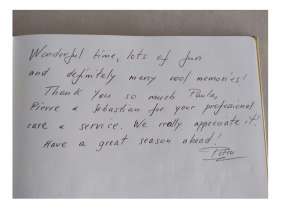 Wonderful time, lots of fun
and definitely many cool memories!
Thank you so much Paula,
Pierre & Sebastian for your professional
care & service. We really appreciate it!
Have a great season ahead!
Petra